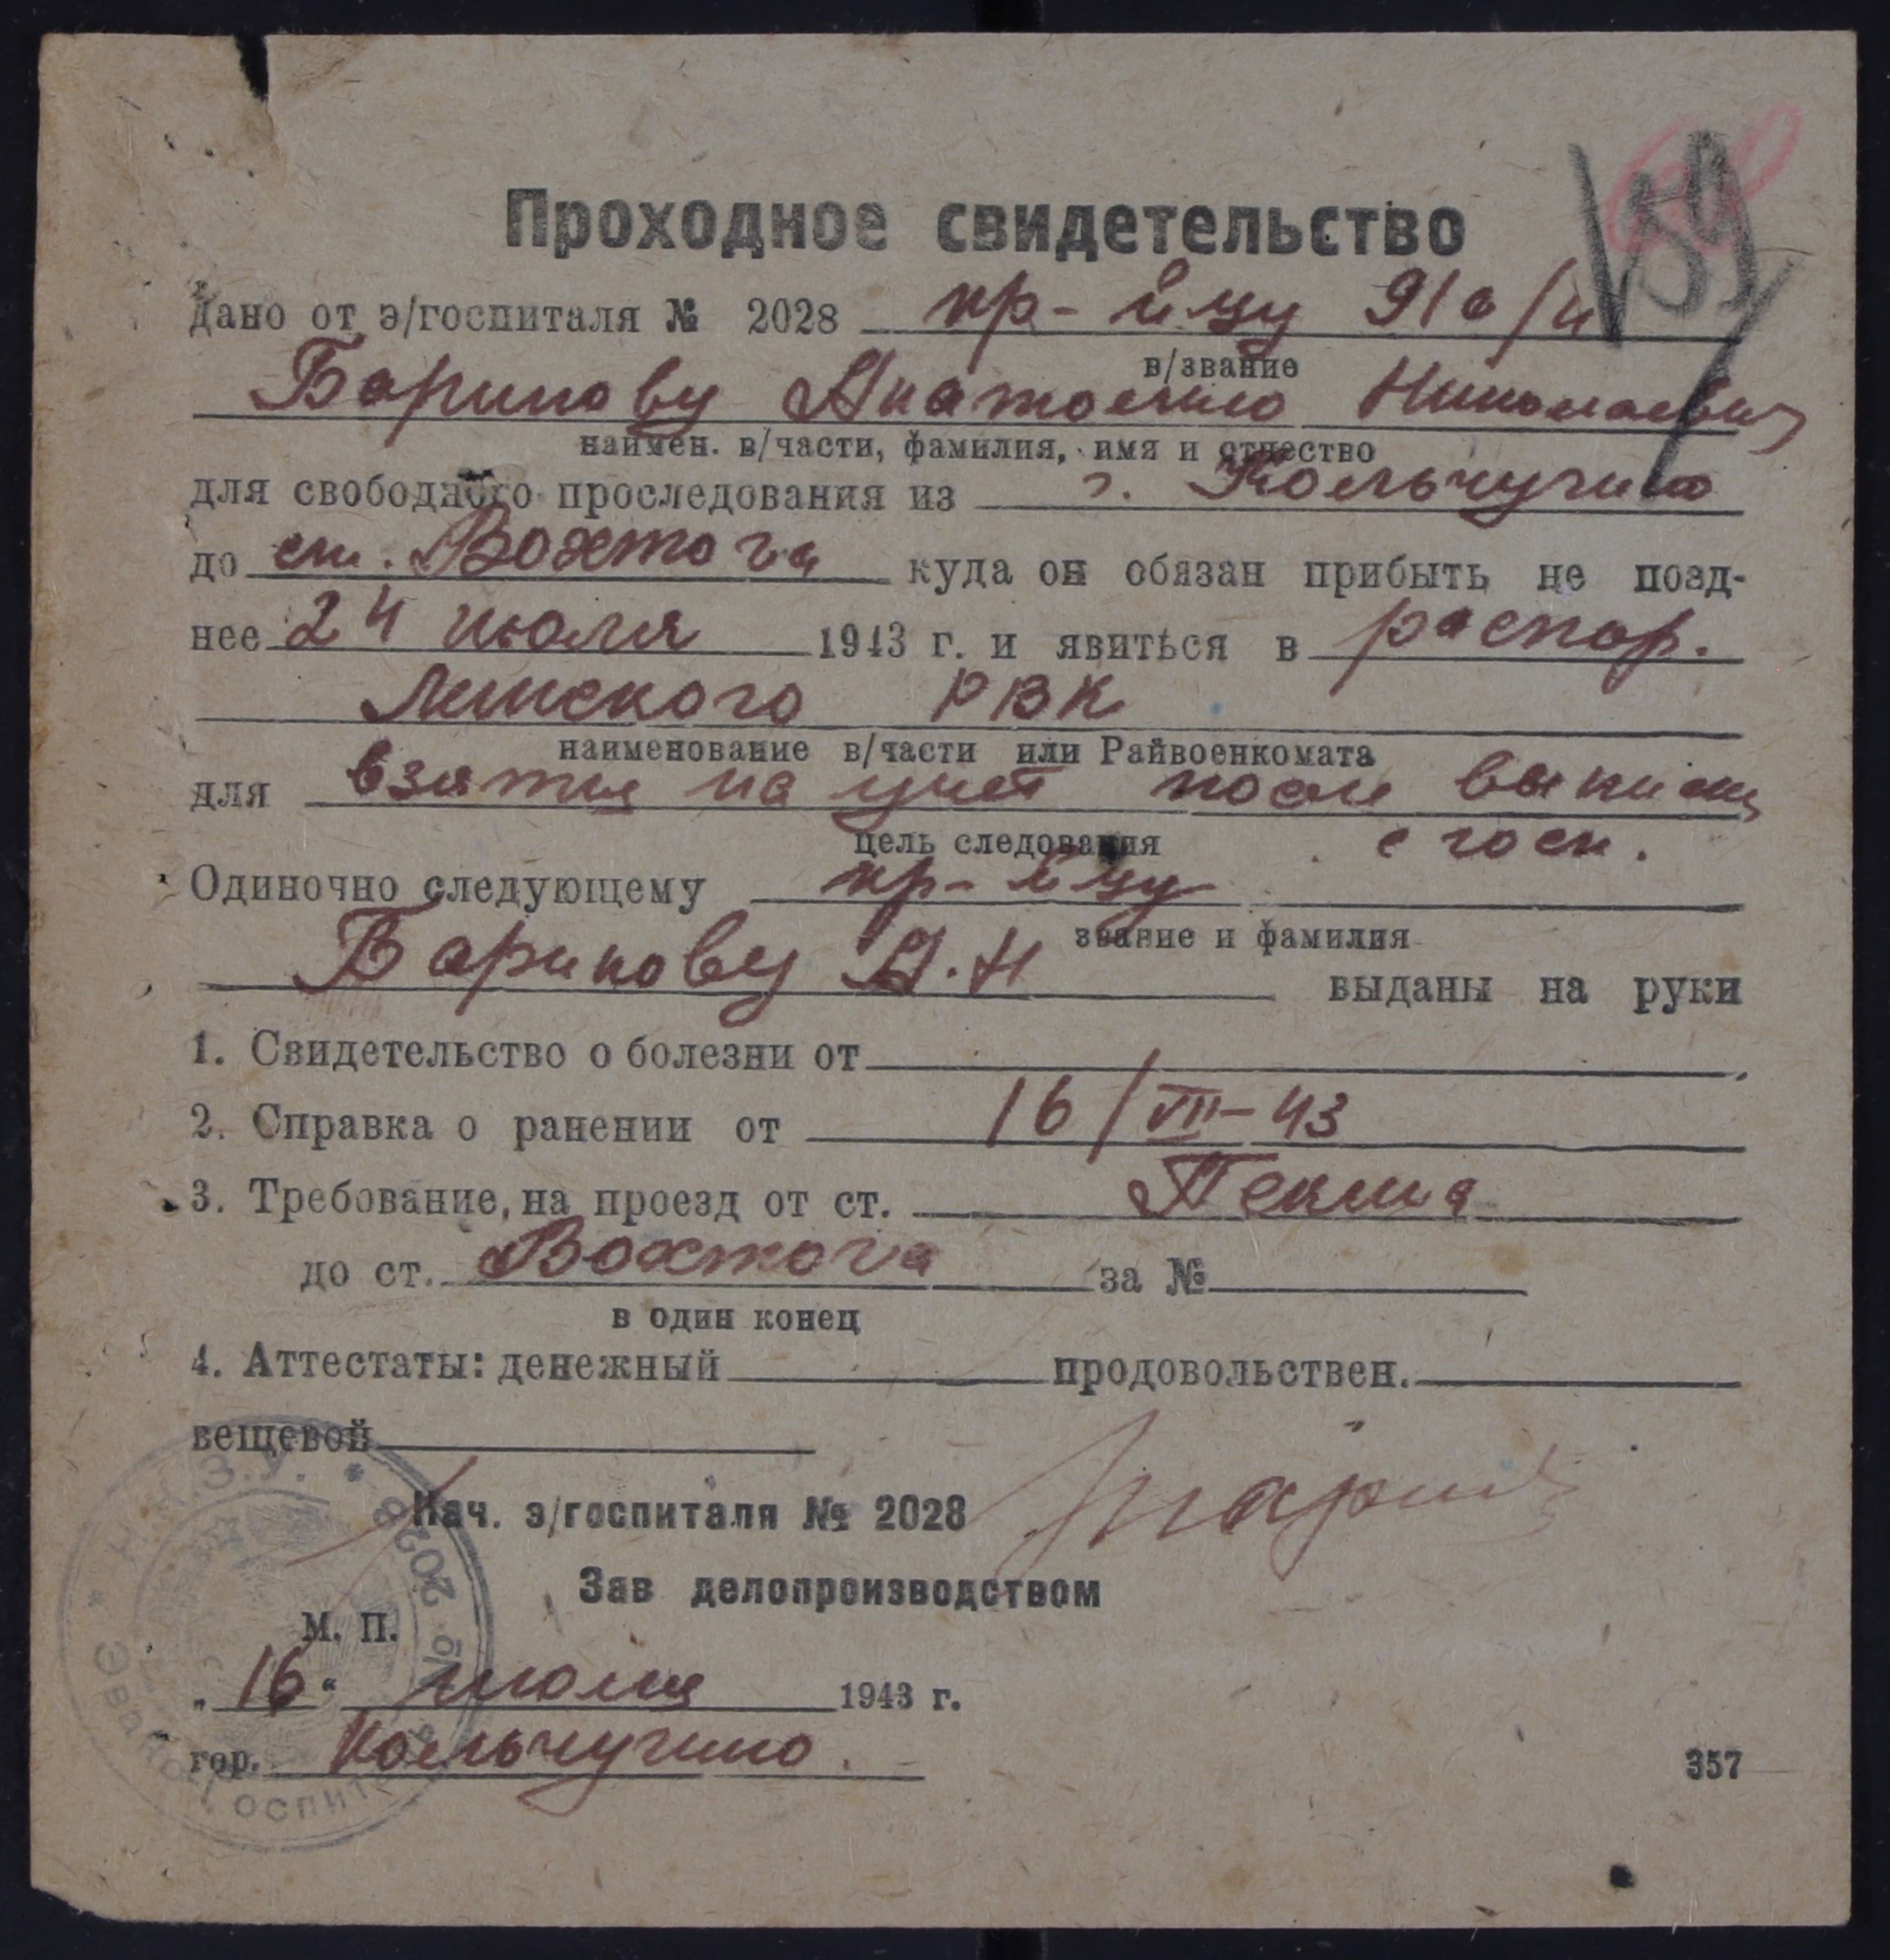 159
Проходное свидетельство
Дано от э/госпиталя № 2028 кр-йцу 916/
в/звание
Баринову Анатолию Николаевич
наимен. в/части, фамилия, имя и отчество
для свободного проследования из г. Кольчугино
до ст. Вохтога куда он обязан прибыть не позд-
нее 24 июля 1943 г. и явиться в распор.
Лежского РВК
наименование в/части или Райвоенкомата
для взятия на учет после выписки
цель следования с госп.
Одиночно следующему кр-йцу
звание и фамилия
Баринову А.Н выданы на руки
1. Свидетельство о болезни от
2. Справка о ранении от 16/VII-43
3. Требование, на проезд от ст. Пекша
до ст. Вохтога за №
в один конец
4. Аттестаты: денежный продовольствен.
вещевой
Нач. э/госпиталя № 2028
Зав делопроизводством
М. П.
„16“ июля 1943 г.
гор. Кольчугино.
357
Н.К.З.У. * № 2028 * Эвакогоспиталь